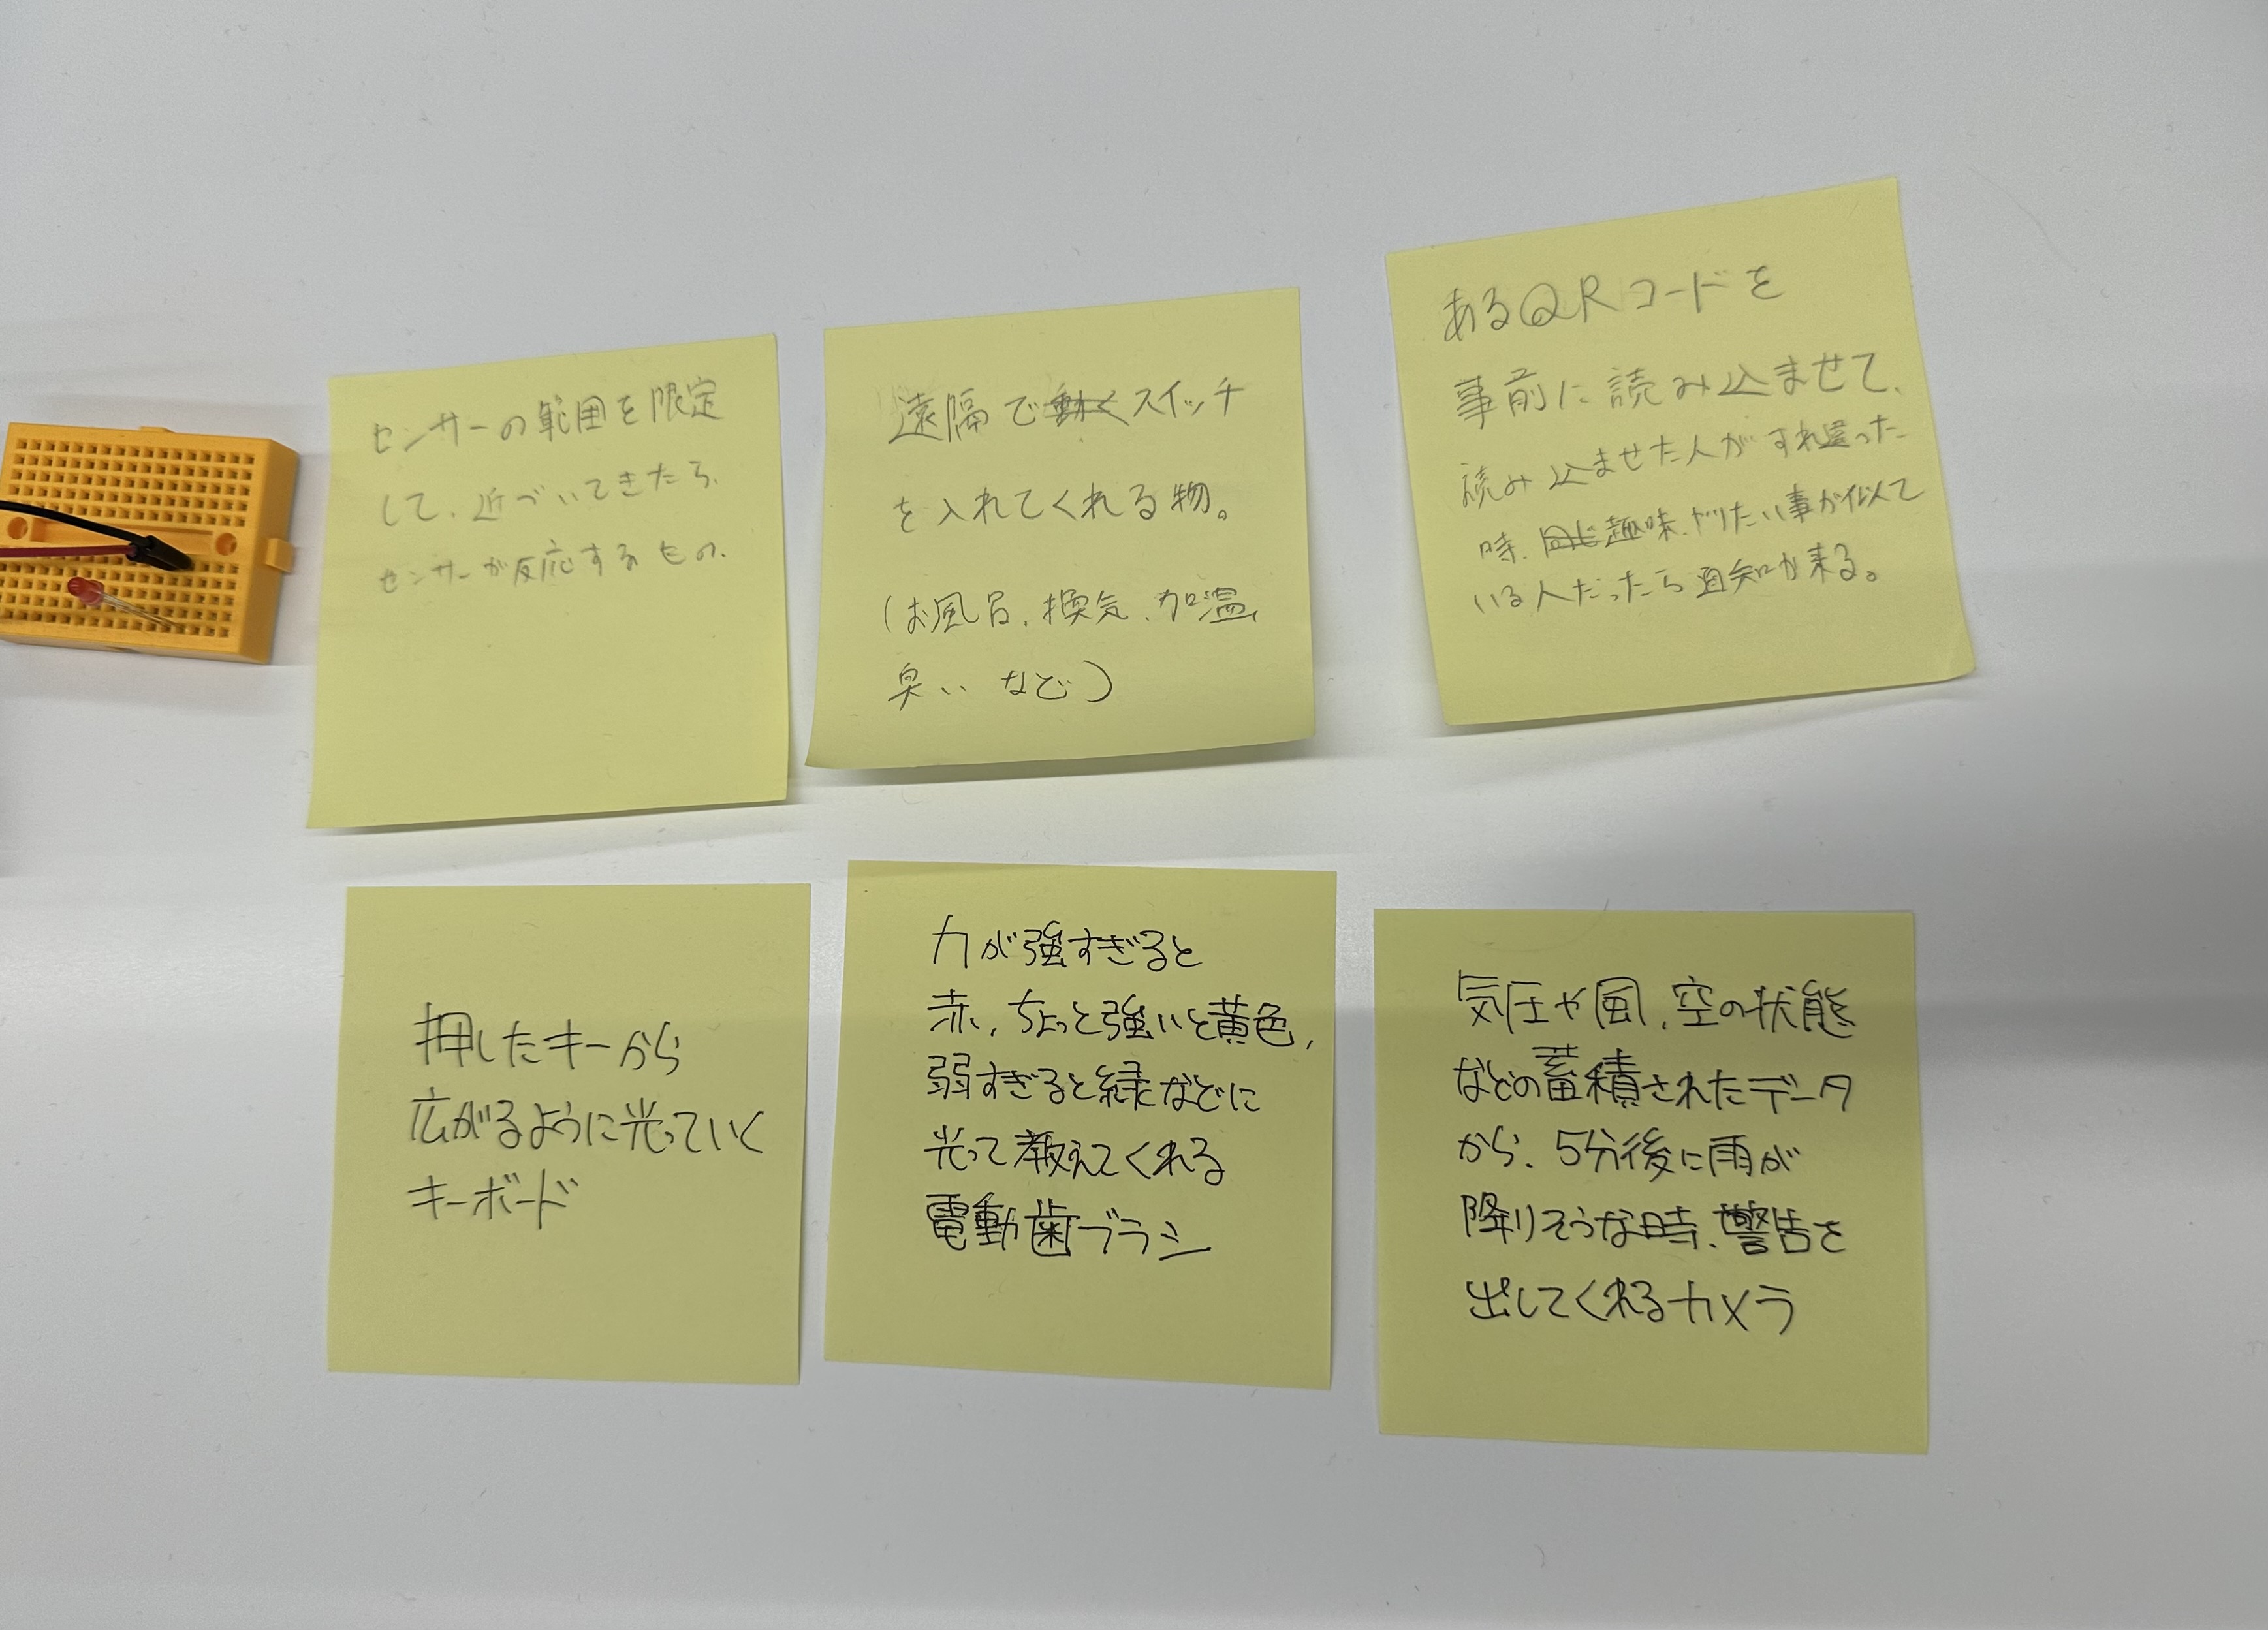 センサーの範囲を限定
して、近づいてきたら、
センサーが反応するもの、
遠隔で動くスイッチ
を入れてくれる物。
(お風呂、換気、加温、
臭い など)
あるQRコードを
事前に読み込ませて、
読み込ませた人がすれ違った
時、同じ趣味、やりたい事が似て
いる人だったら通知が来る。
押したキーから
広がるように光っていく
キーボード
力が強すぎると
赤、ちょっと強いと黄色,
弱すぎると緑などに
光って教えてくれる
電動歯ブラシ
気圧や風、空の状態
などの蓄積されたデータ
から、5分後に雨が
降りそうな時、警告を
出してくれるカメラ